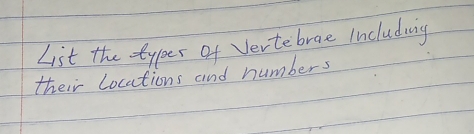 List the types of Vertebrae Including
their Locations and numbers